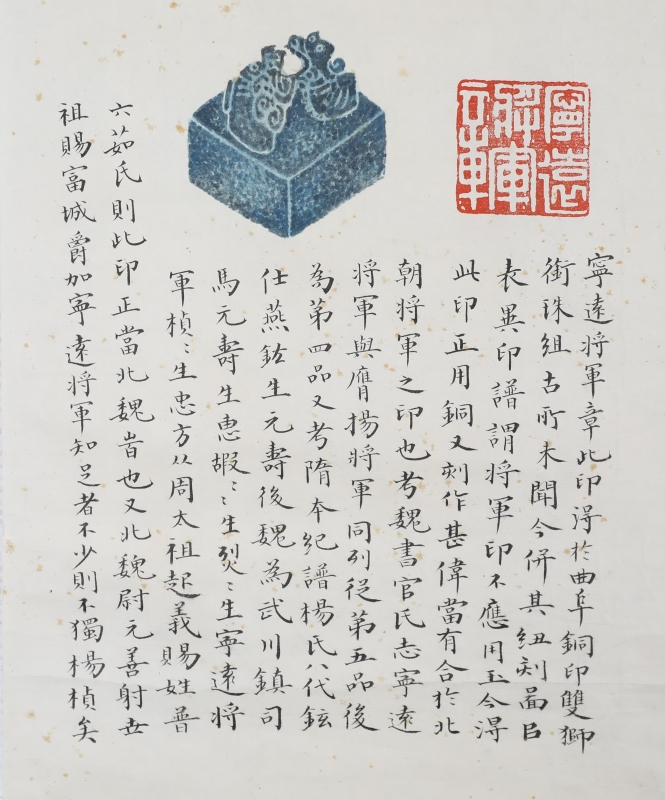 寧遠將軍章
寧遠將軍章此印淂於曲阜銅印雙獅
銜珠組古所未聞今併其紐刻啚㠯
表異印譜謂將軍印不應用玉今淂
此印正用銅又刻作甚偉當有合於北
朝將軍之印也考魏書官氏志寧遠
將軍與鷹揚將軍同列從第五品後
為第四品又考隋本紀譜楊氏八代鉉
仕燕鉉生元壽後魏為武川鎮司
馬元壽生惠嘏〻生烈〻生寧遠將
軍楨〻生忠方从周太祖起義賜姓普
六茹氏則此印正當北魏旹也又北魏尉元善射世
祖賜富城爵加寧遠將軍知是者不少則不獨楊楨矣